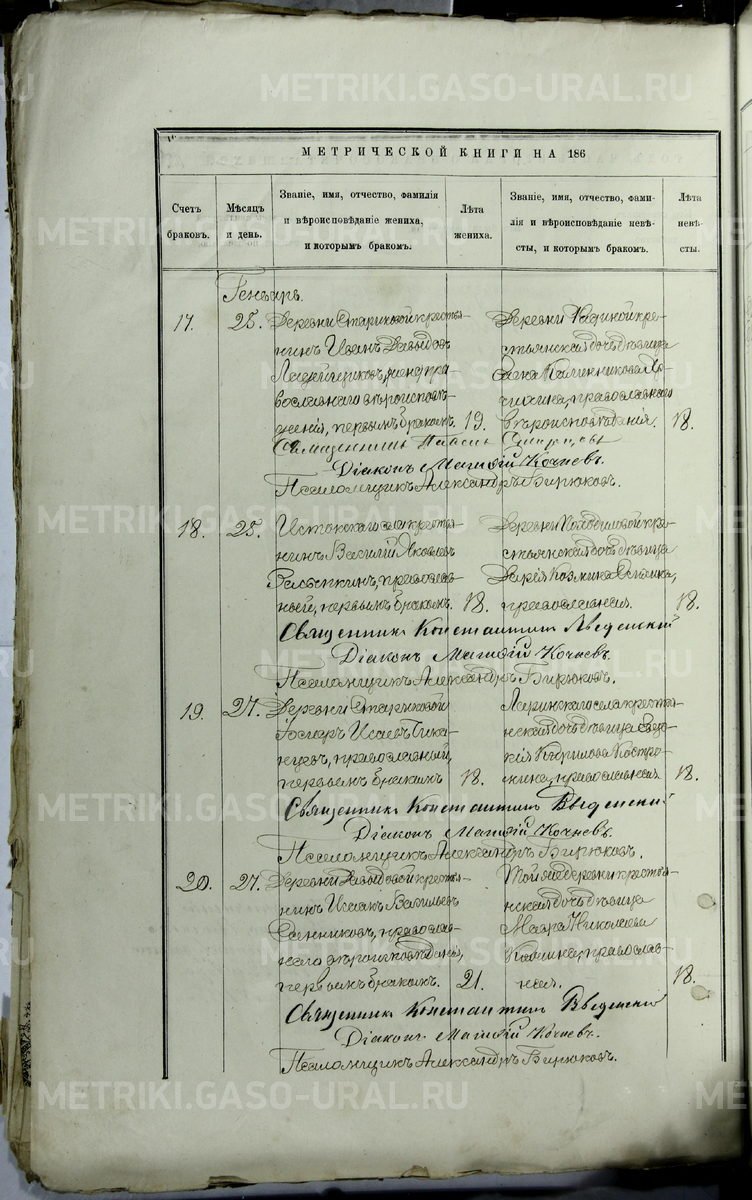 МЕТРИЧЕСКОЙ КНИГИ НА 186
Счетъ браковъ.
Мѣсяцъ и день.
Званіе, имя, отчество, фамилія
и вѣроисповѣданіе жениха,
и которымъ бракомъ.
Лѣта жениха.
Званіе, имя, отчество, фами-
лія и вѣроисповѣданіе невѣ-
сты, и которымъ бракомъ.
Лѣта невѣ-
сты.
Генварь.
17. 25. Деревни Стариковой крестья-
нинъ Иванъ Давыдовъ
православнаго вѣроисповѣ-
данія, первымъ бракомъ. 19.
Деревни кре-
стьянская дочь дѣвица
Анна Калинникова
православнаго
вѣроисповѣданія. 18.
Священникъ
Діаконъ Матѳій Кочневъ.
Псаломщикъ Александръ Бирюковъ.
18. 25. Истокскаго села крестья-
нинъ Василій Яковлевъ
православ-
ный, первымъ бракомъ. 18.
Деревни кре-
стьянская дочь дѣвица
Дарія Козмина
православная. 18.
Священникъ Константинъ Введенскій
Діаконъ Матѳій Кочневъ.
Псаломщикъ Александръ Бирюковъ.
19. 27. Деревни Стариковой
Исаевъ Чика-
нцевъ, православный,
первымъ бракомъ 18.
села крестья-
нская дочь дѣвица Евдо-
кія Кирилова Костро-
мина, православная 18.
Священникъ Константинъ Введенскій
Діаконъ Матѳій Кочневъ.
Псаломщикъ Александръ Бирюковъ.
20. 27. Деревни Давыдовой крестья-
нинъ Исаакъ Васильевъ
Санниковъ, православ-
наго вѣроисповѣданія,
первымъ бракомъ. 21.
Той же деревни крестья-
нская дочь дѣвица
Мавра Николаева
православ-
ная. 18.
Священникъ Константинъ Введенскій
Діаконъ Матѳій Кочневъ.
Псаломщикъ Александръ Бирюковъ.
METRIKI.GASO-URAL.RU